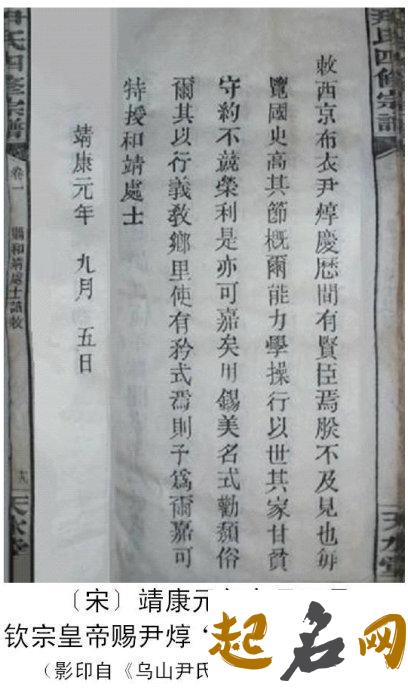 尹氏四修宗譜
天水堂
敕西京布衣尹焞慶歷間有賢臣焉朕不及見也每
覽國史高其節概爾能力學操行以世其家甘貧
守約不競榮利是亦可嘉矣用錫美名式勸頹俗
爾其以行義教鄉里使有矜式焉則予爲爾嘉可
特授和靖處士
靖康元年 九月 五日
尹氏四修宗譜
卷一
賜和靖處士誥敕
十九
天水堂
〔宋〕靖康元
钦宗皇帝赐尹焞“
（影印自《乌山尹氏
起名网